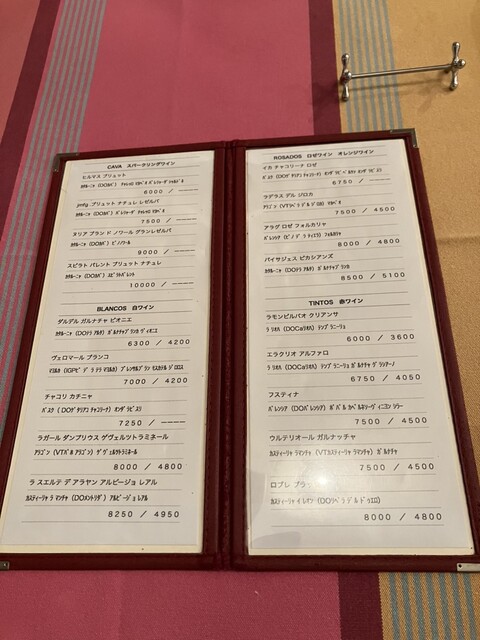 CAVA スパークリングワイン
ヒルマス ブリュット
6000 / ———
ブリュット ナチュレ レゼルバ
7500 / ———
ヌリア ブラン ド ノワール グランレゼルバ
カタルーニャ (DOカバ) ピノノワール
9000 / ———
スピラト バレント ブリュット ナチュレ
10000 / ———
BLANCOS 白ワイン
ダルデル ガルナチャ ビオニエ
カタルーニャ (DOテラアルタ) ガルナチャブランカ ヴィオニエ
6300 / 4200
ヴェロマール ブランコ
7000 / 4200
チャコリ カチニャ
バスク (DOゲタリアコチャコリーナ) オンダラビスリ
7250 / ———
ラガール ダンプリウス ゲヴェルツトラミネール
8000 / 4800
ラ スエルテ デ アラヤン アルビージョ レアル
カスティーリャ ラ マンチャ (DOメントリダ) アルビージョ レアル
8250 / 4950
ROSADOS ロゼワイン オレンジワイン
イカ チャコリーナ ロゼ
6750 / ———
ラデラス デル ジロカ
7500 / 4500
アラグ ロゼ フォルカリャ
8000 / 4800
パイサジェス ピカシアンズ
カタルーニャ (DOテラアルタ) ガルナチャブランカ
8500 / 5100
TINTOS 赤ワイン
ラモンビルバオ クリアンサ
ラ リオハ (DOCaリオハ) テンプラニーリョ
6000 / 3600
エラクリオ アルファロ
ラ リオハ (DOCaリオハ) テンプラニーリョ ガルナチャ グラシアーノ
6750 / 4050
フスティナ
7500 / 4500
ウルテリオール ガルナッチャ
カスティーリャ ラマンチャ (VTカスティーリャ ラマンチャ) ガルナチャ
7500 / 4500
ロブレ
カスティーリャ イ レオン (DOリベラ デル ドゥエロ)
8000 / 4800